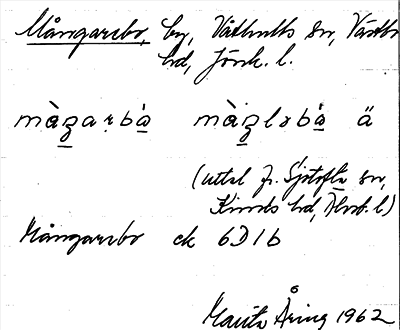 Mångarebo, by, Västhults sn, Västbo
hd, Jönk. l.
màgarbà màgləbà ä
(uttal fr. Sjötofta sn,
Kinds hd, Älvsb. l)
Mångarebo ek 6D1b
Marita Åring 1962